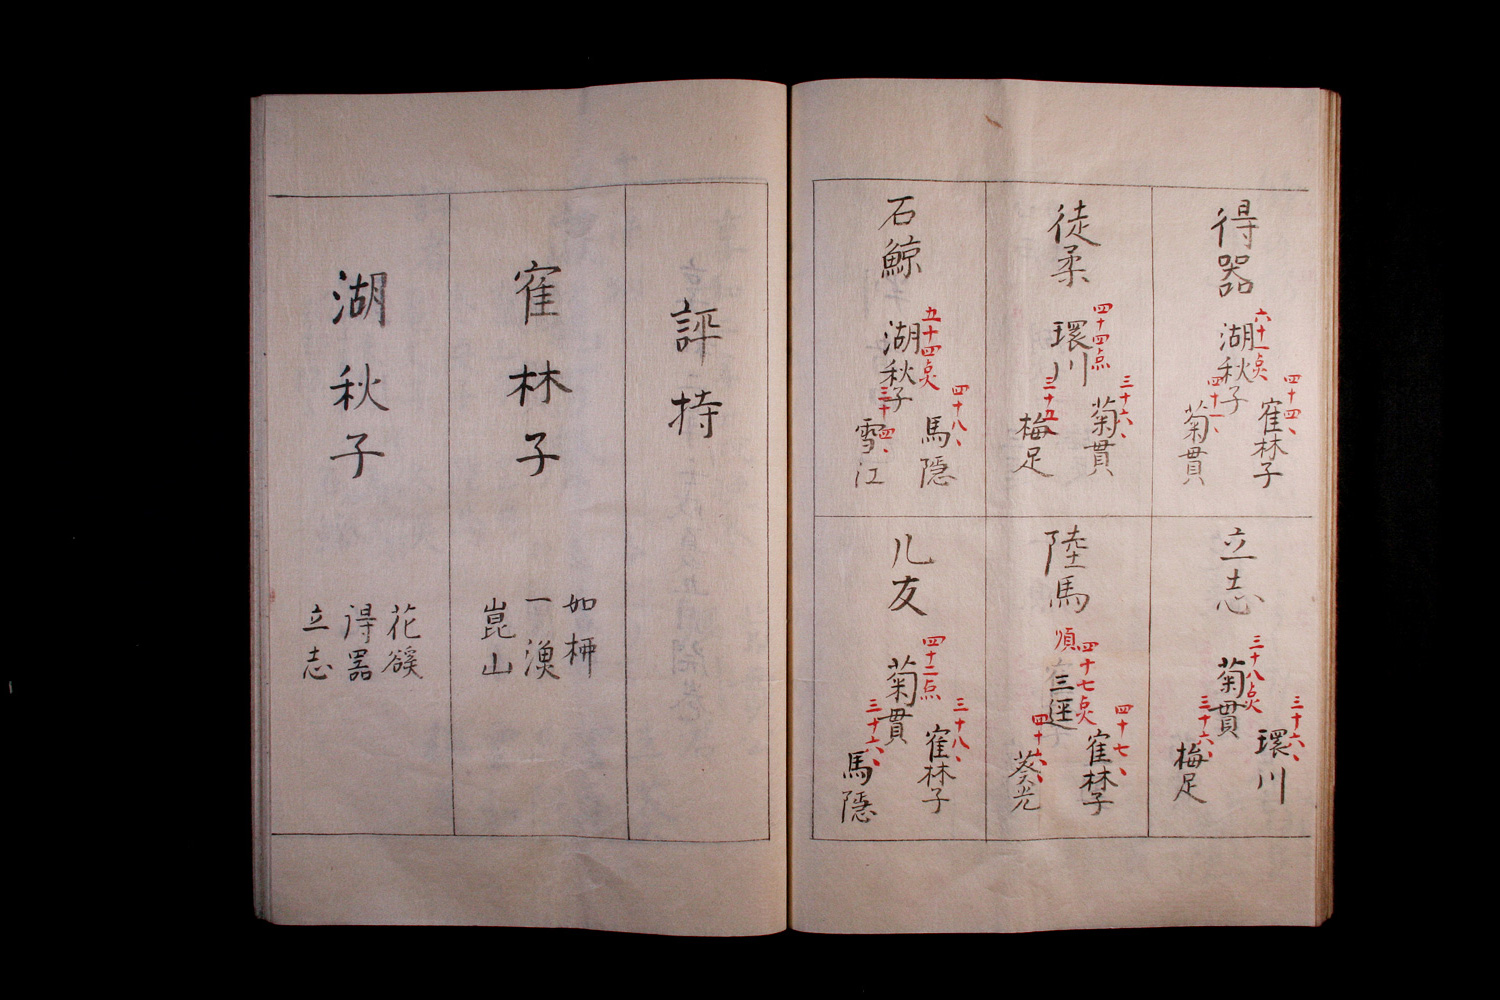 得器
六十一点
湖秋子
四十四、
寉林子
四十一、
菊貫
立志
三十八点
菊貫
三十六、
環川
三十六、
梅足
徒柔
四十四点
環川
三十六、
菊貫
三十五、
梅足
陸馬
順
四十七点
寉林子
四十七、
四十六、
葵光
石鯨
五十四点
湖秋子
四十八、
馬隠
三十四、
雪江
儿友
四十二点
菊貫
三十八、
寉林子
三十六、
馬隠
評持
寉林子
如柳
一漁
崑山
湖秋子
花谿
得器
立志